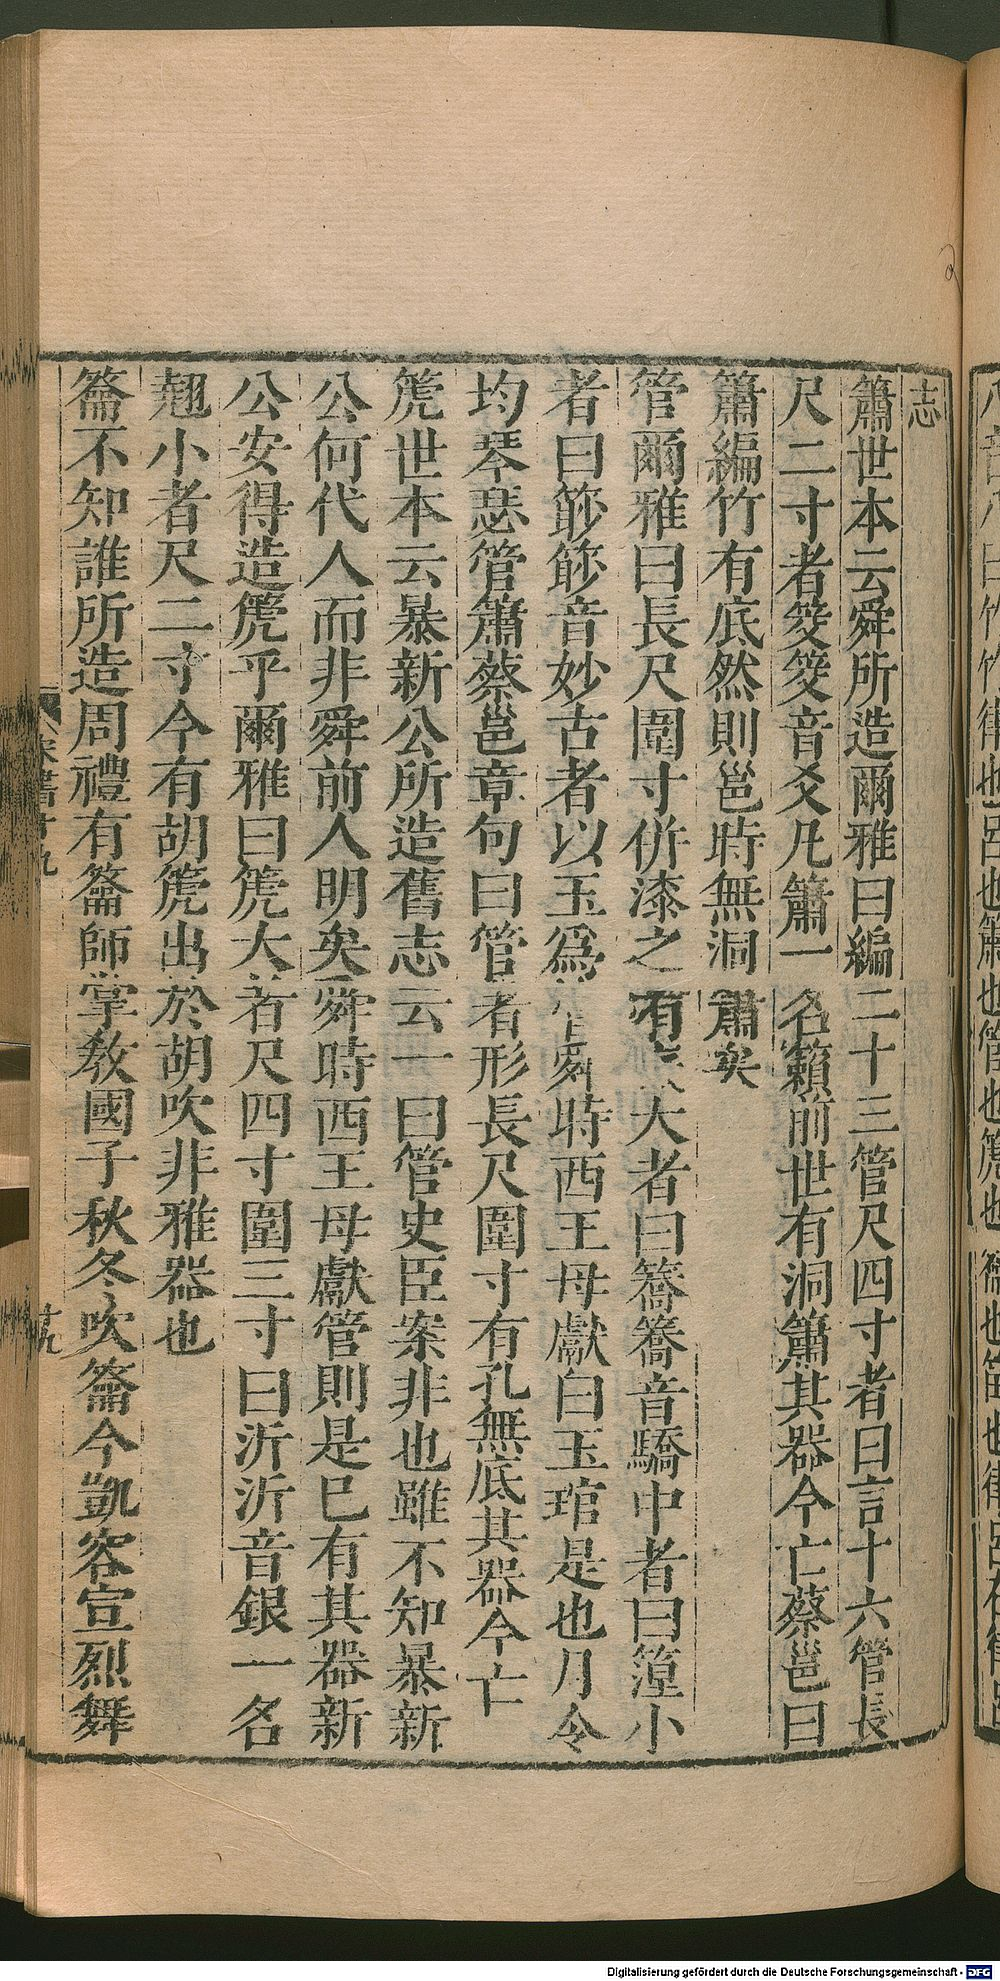 志
簫世本云舜所造爾雅曰編二十三管尺四寸者曰言十六管長
尺二寸者筊筊音爻凡簫一名籟前世有洞簫其器今亡蔡邕曰
簫編竹有底然則邕時無洞簫矣
管爾雅曰長尺圍寸併漆之有大者曰簥簥音驕中者曰篞小
者曰篎篎音妙古者以玉爲舜時西王母獻白玉琯是也月令
均琴瑟管簫蔡邕章句曰管者形長尺圍寸有孔無底其器今亡
篪世本云暴新公所造舊志云一曰管史臣案非也雖不知暴新
公何代人而非舜前人明矣舜時西王母獻管則是已有其器新
公安得造篪乎爾雅曰篪大者尺四寸圍三寸曰沂沂音銀一名
翹小者尺二寸今有胡篪出於胡吹非雅器也
籥不知誰所造周禮有籥師掌敎國子秋冬吹籥今凱容宣烈舞
宋書十九
十九
八音八曰竹竹律也呂也簫也管也篪也籥也笛也律呂在律呂